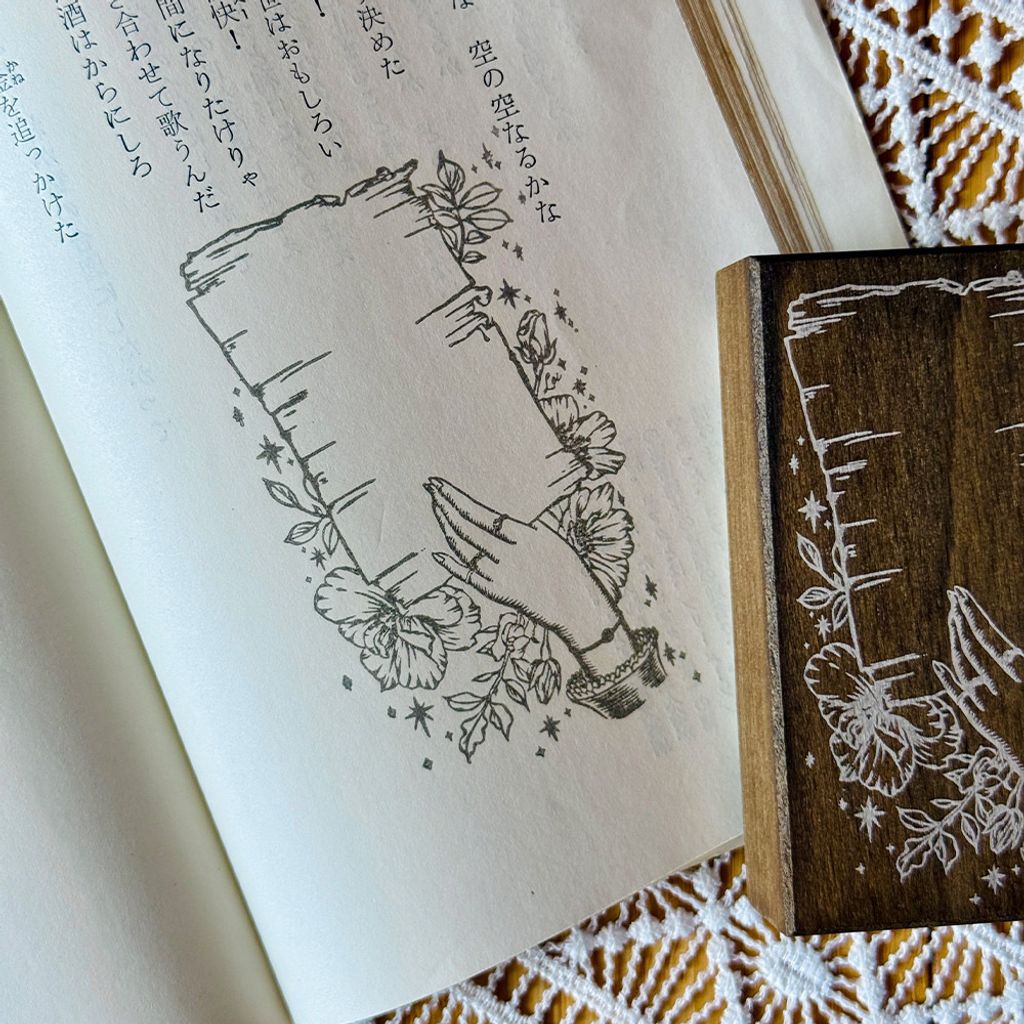 な　空の空なるかな
決めた
！
はおもしろい
快！
間になりたけりゃ
合わせて歌うんだ
酒はからにしろ
金を追っかけた
かね